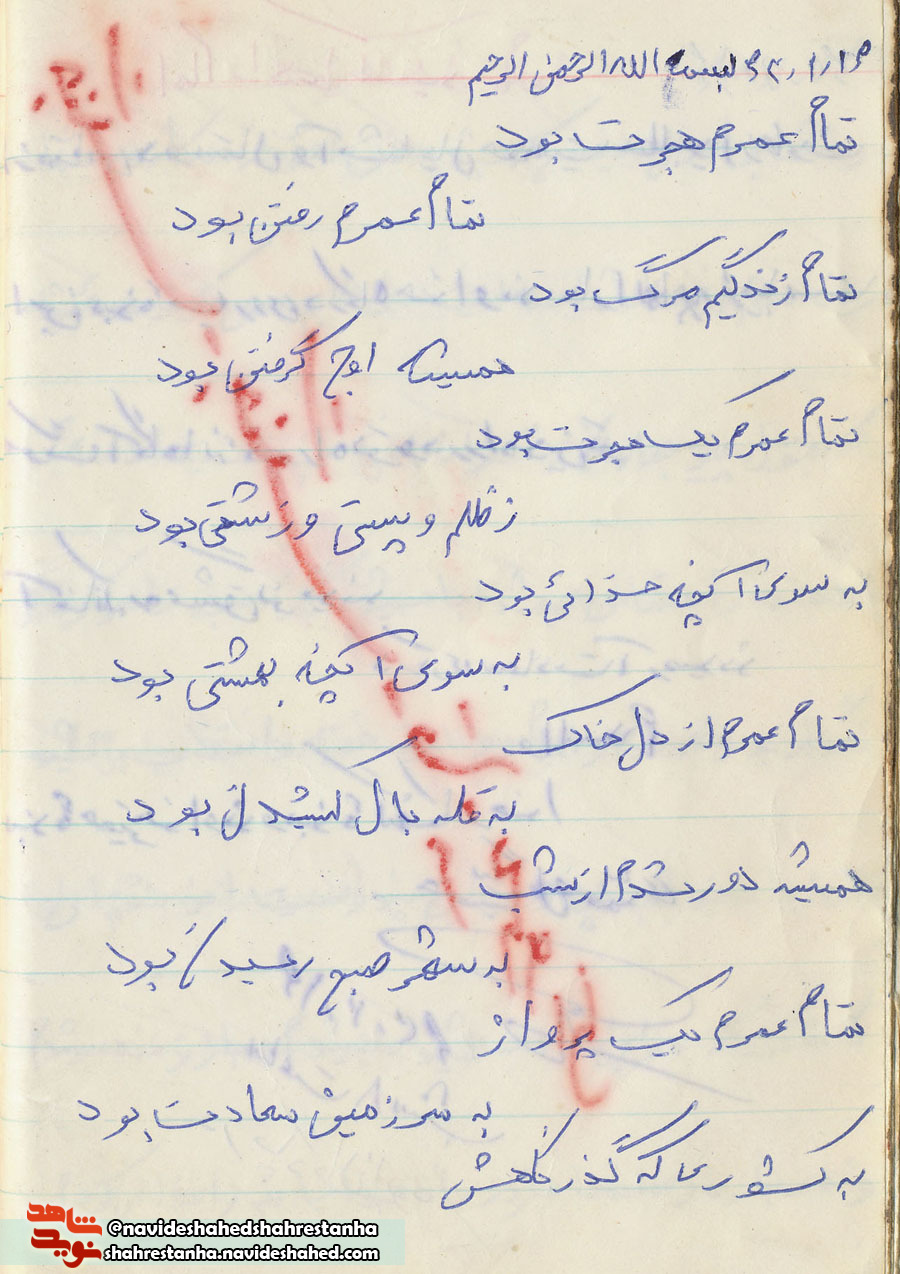 بسمه الله الرحمن الرحیم
تمام عمرم هجرت بود
تمام عمرم رفتن بود
تمام زندگیم مرگ بود
همیشه اوج گرفتن بود
تمام عمرم یک هجرت بود
ز ظلم و پستی و زشتی بود
به سوی آنچه خدائی بود
به سوی آنچه بهشتی بود
تمام عمرم از دل خاک
به قله بال کشیدن بود
همیشه دور شدم از شب
به شهر صبح رسیدن بود
تمام عمرم یک پرواز
به سرزمین سعادت بود
به کشوری که گذرگاهش
شاهد
نوید
@navideshahedshahrestanha
shahrestanha.navideshahed.com